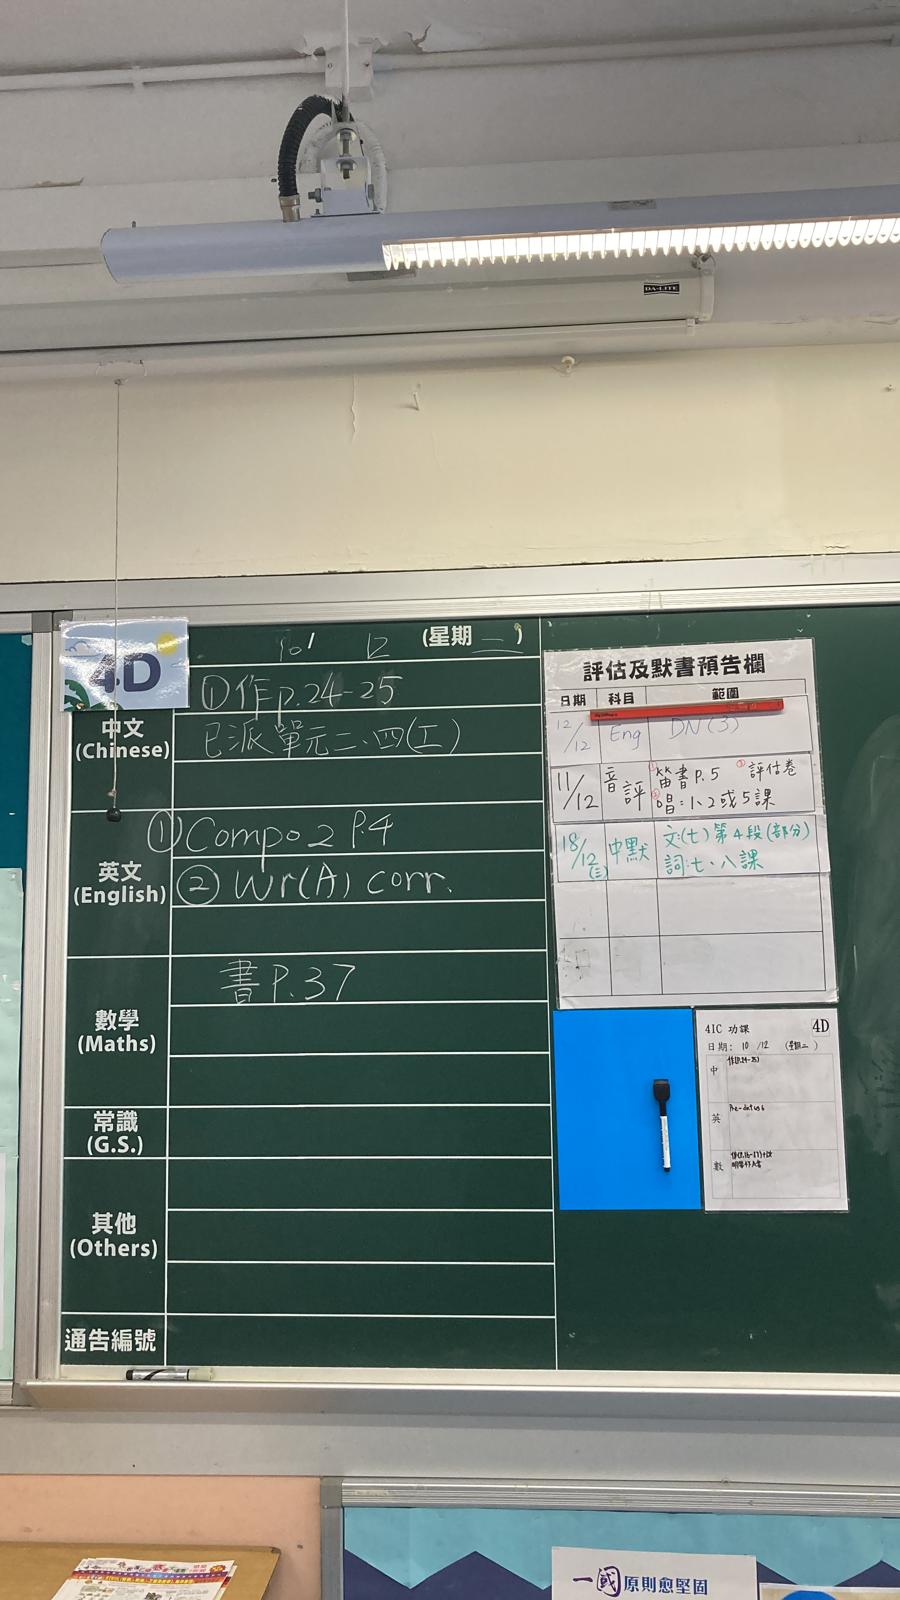 DA-LITE
4D
10/ 12 (星期二)
中文
(Chinese)
①作p.24-25
已派單元三、四(工)
英文
(English)
①Compo 2 P.4
② Wr(A) corr.
數學
(Maths)
書P.37
常識
(G.S.)
其他
(Others)
通告編號
評估及默書預告欄
日期 科目 範圍
12/12 Eng DN(3)
11/12 音評 ①笛書P.5 ③評估卷
②唱:1、2或5課
18/12(三) 中默 文:(七)第4段(部分)
詞:七、八課
4IC 功課 4D
日期: 10 /12 (星期二)
中 作(P.24-25)
英
數
一國原則愈堅固